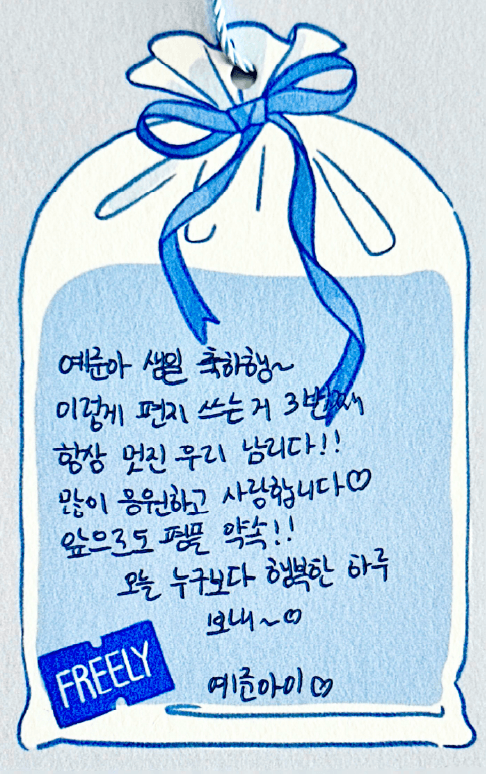 예준아 생일 축하행~
이렇게 편지 쓰는거 3번째
항상 멋진 우리 남리다!!
많이 응원하고 사랑합니다♡
앞으로도 평플 약속!!
오늘 누구보다 행복한 하루
보내~♡
예준아이♡
FREELY